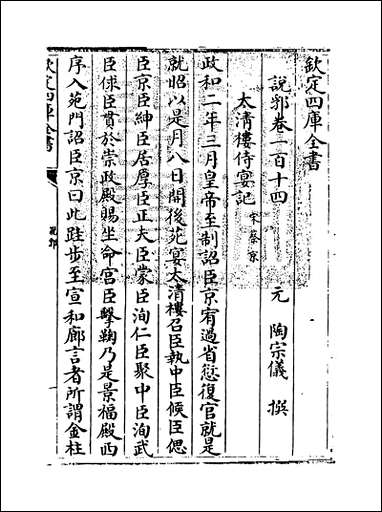 欽定四庫全書
說郛卷一百十四
元 陶宗儀 撰
太清樓侍宴記 宋蔡京
政和二年三月皇帝至制詔臣京宥過省愆復官就是
就昭以是月八日開後苑宴太清樓召臣執中臣俁臣偲
臣京臣紳臣居厚臣正夫臣蒙臣洵仁臣聚中臣洵武
臣俅臣貫於崇政殿賜坐命宫臣擊鞠乃是景福殿西
序入苑門詔臣京曰此跬步至宣和廊言者所謂金柱
欽定四庫全書
說郛